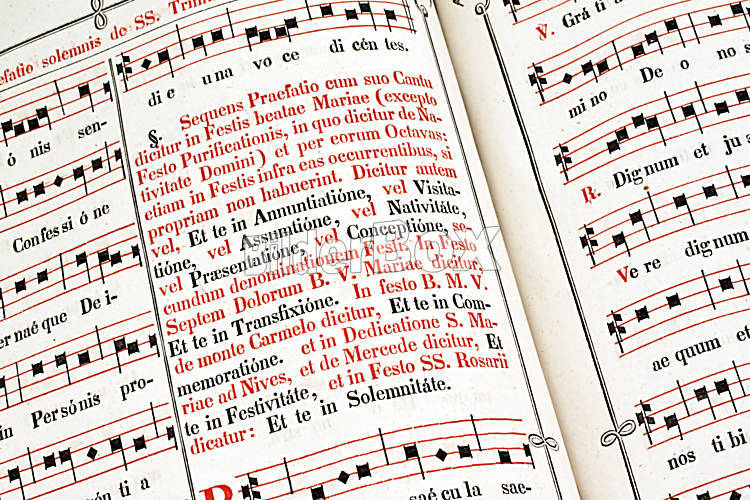 efatio solemnis de SS. Trini
ó nis sen-
Confes si ó ne
ernaé que De i-
in Per só nis pro-
én ti a
di c u na vo ce di cén tes.
§. Sequens Praefatio cum suo Cantu
dicitur in Festis beatae Mariae (excepto
Festo Purificationis, in quo dicitur de Na-
tivitate Domini) et per eorum Octavas:
etiam in Festis infra eas occurrentibus, si
propriam non habuerint. Dicitur autem
vel, Et te in Annuntiatióne, vel Visita-
tióne, vel Assumtióne, vel Nativitáte,
vel Præsentatióne, vel Conceptióne, se-
cundum denominationem Festi. In Festo
Septem Dolorum B. V. Mariae dicitur,
Et te in Transfixióne. In festo B. M. V.
de monte Carmelo dicitur, Et te in Com-
memoratióne. et in Dedicatione S. Ma-
riae ad Nives, et de Mercede dicitur, Et
te in Festivitáte, et in Festo SS. Rosarii
dicatur: Et te in Solemnitáte.
saé cu la sae-
V. Grá ti a
mi no De o no s
R. Dig num et ju s
Ve re dig num
ae quum et
nos ti bi
BilderBox